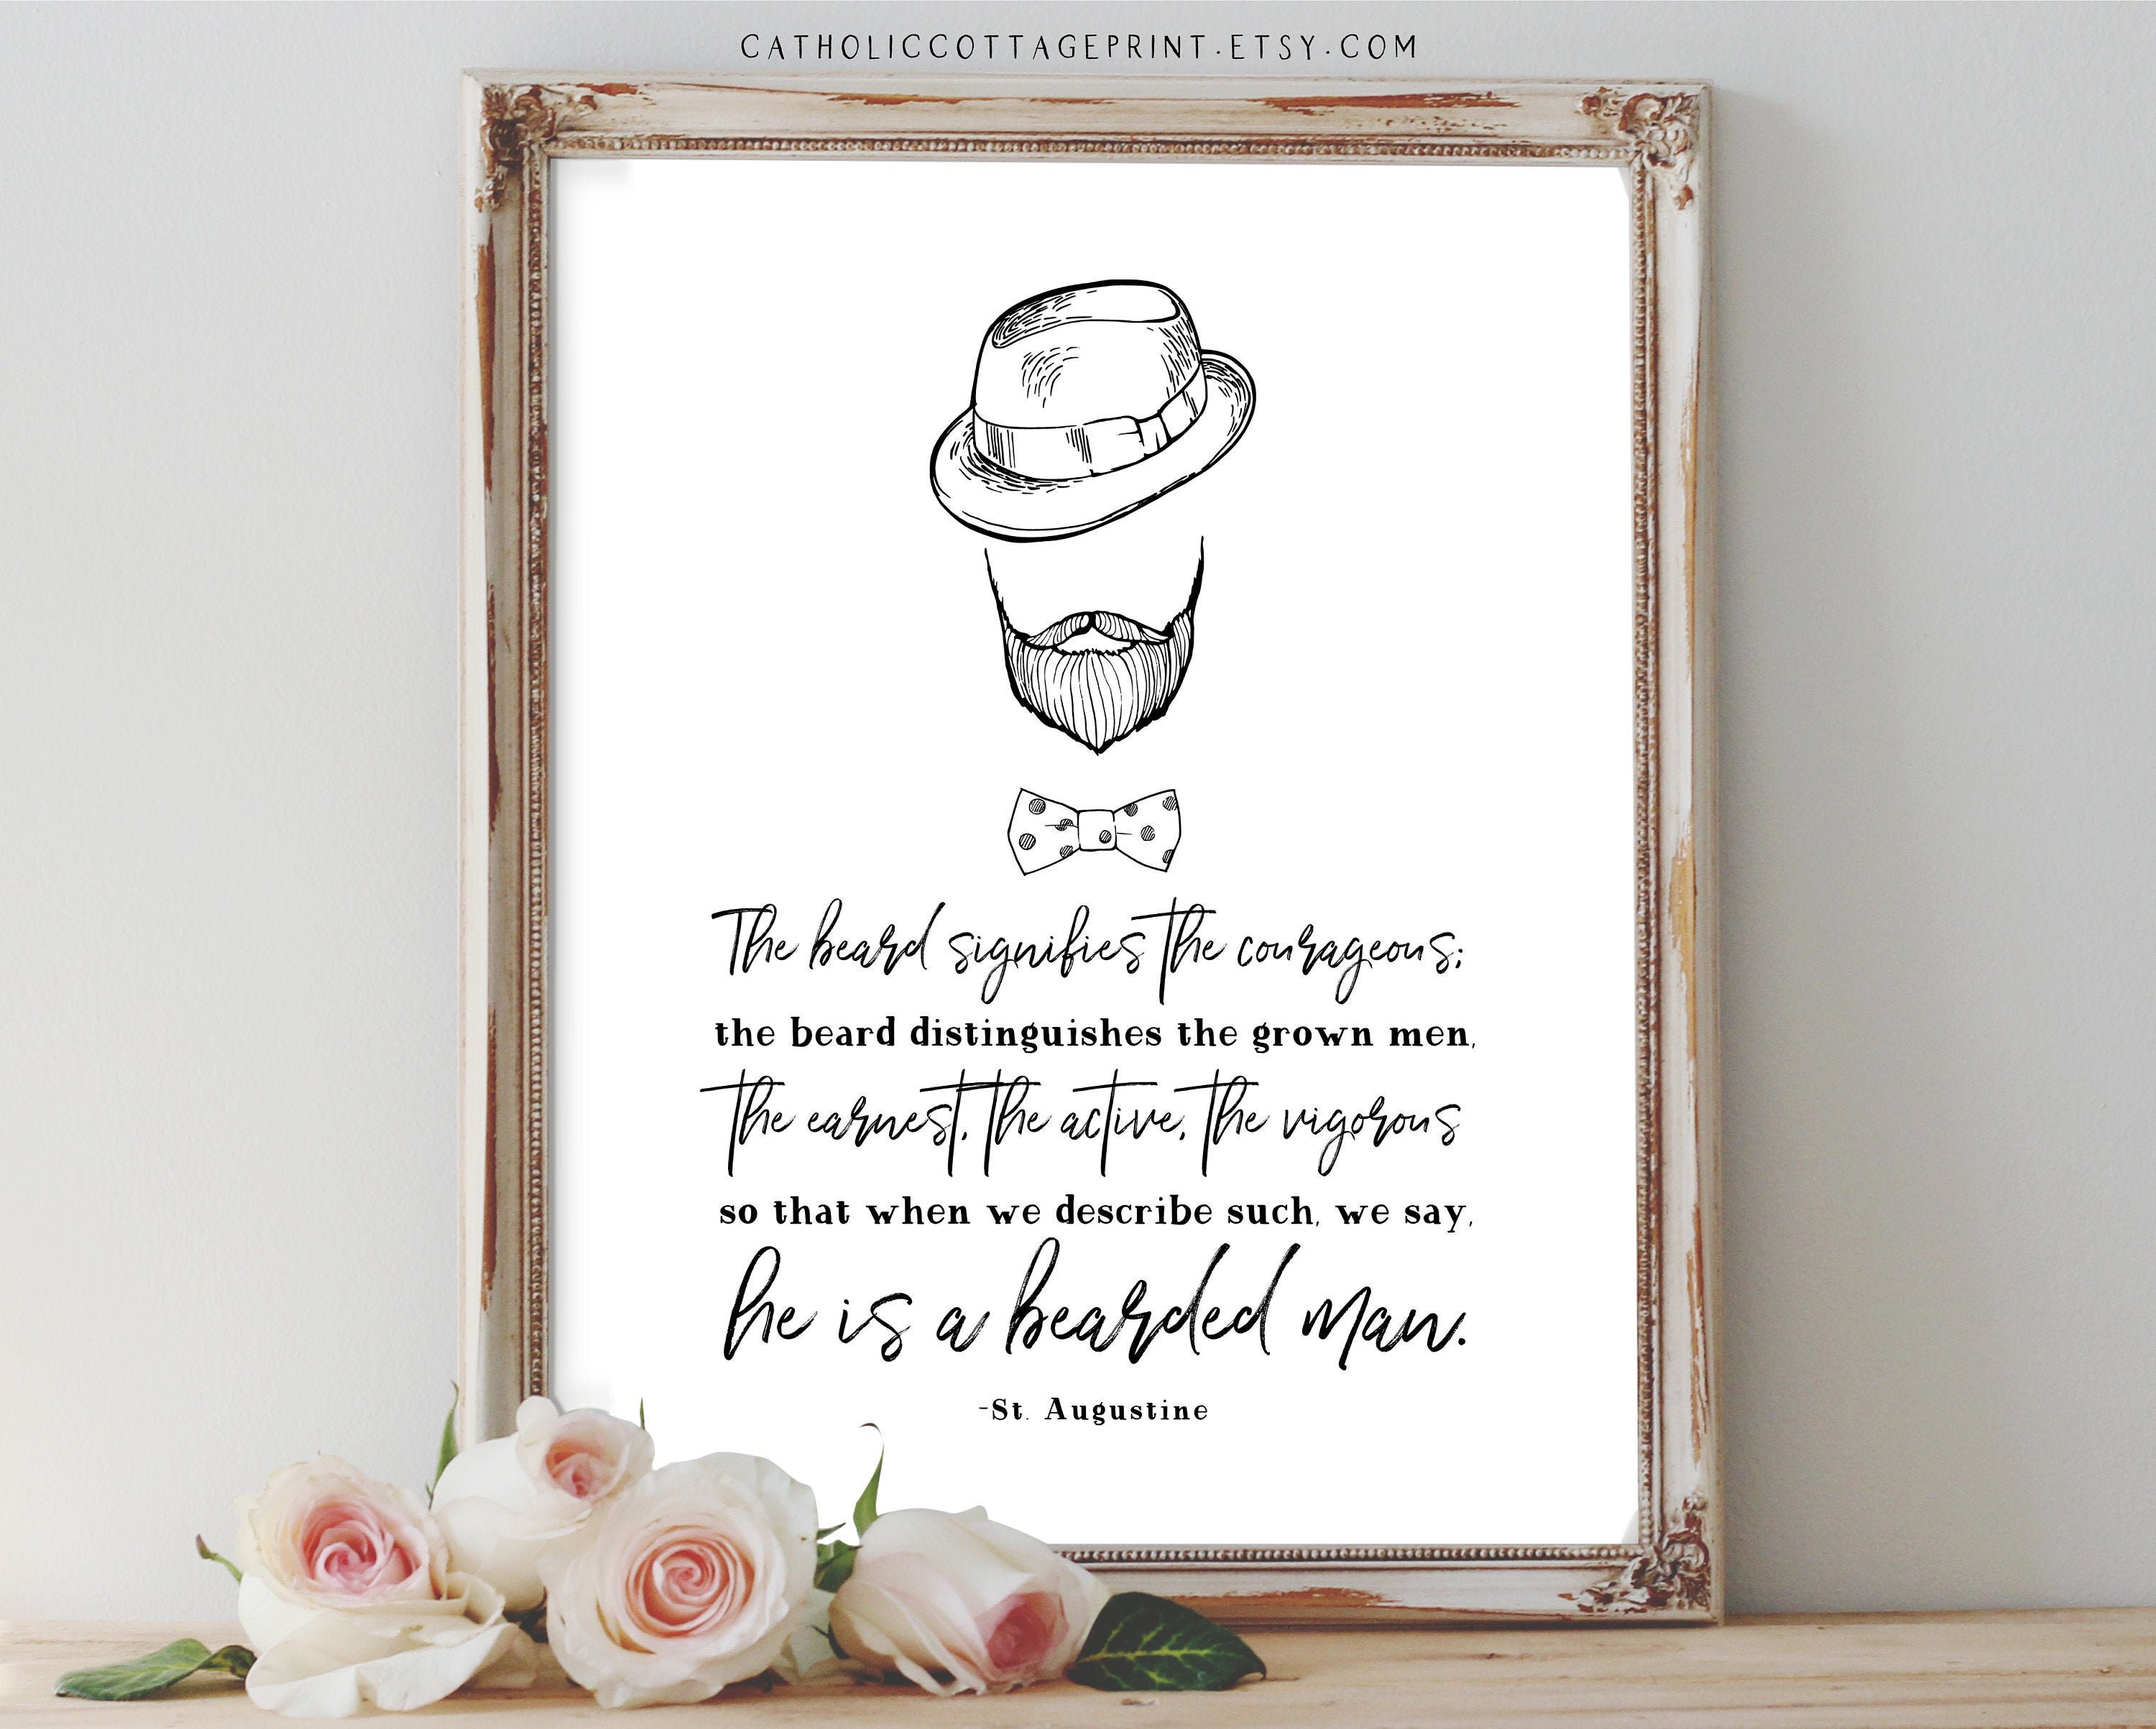 CATHOLICCOTTAGEPRINT.ETSY.COM
The beard signifies the courageous;
the beard distinguishes the grown men,
the earnest, the active, the vigorous
so that when we describe such, we say,
he is a bearded man.
-St. Augustine